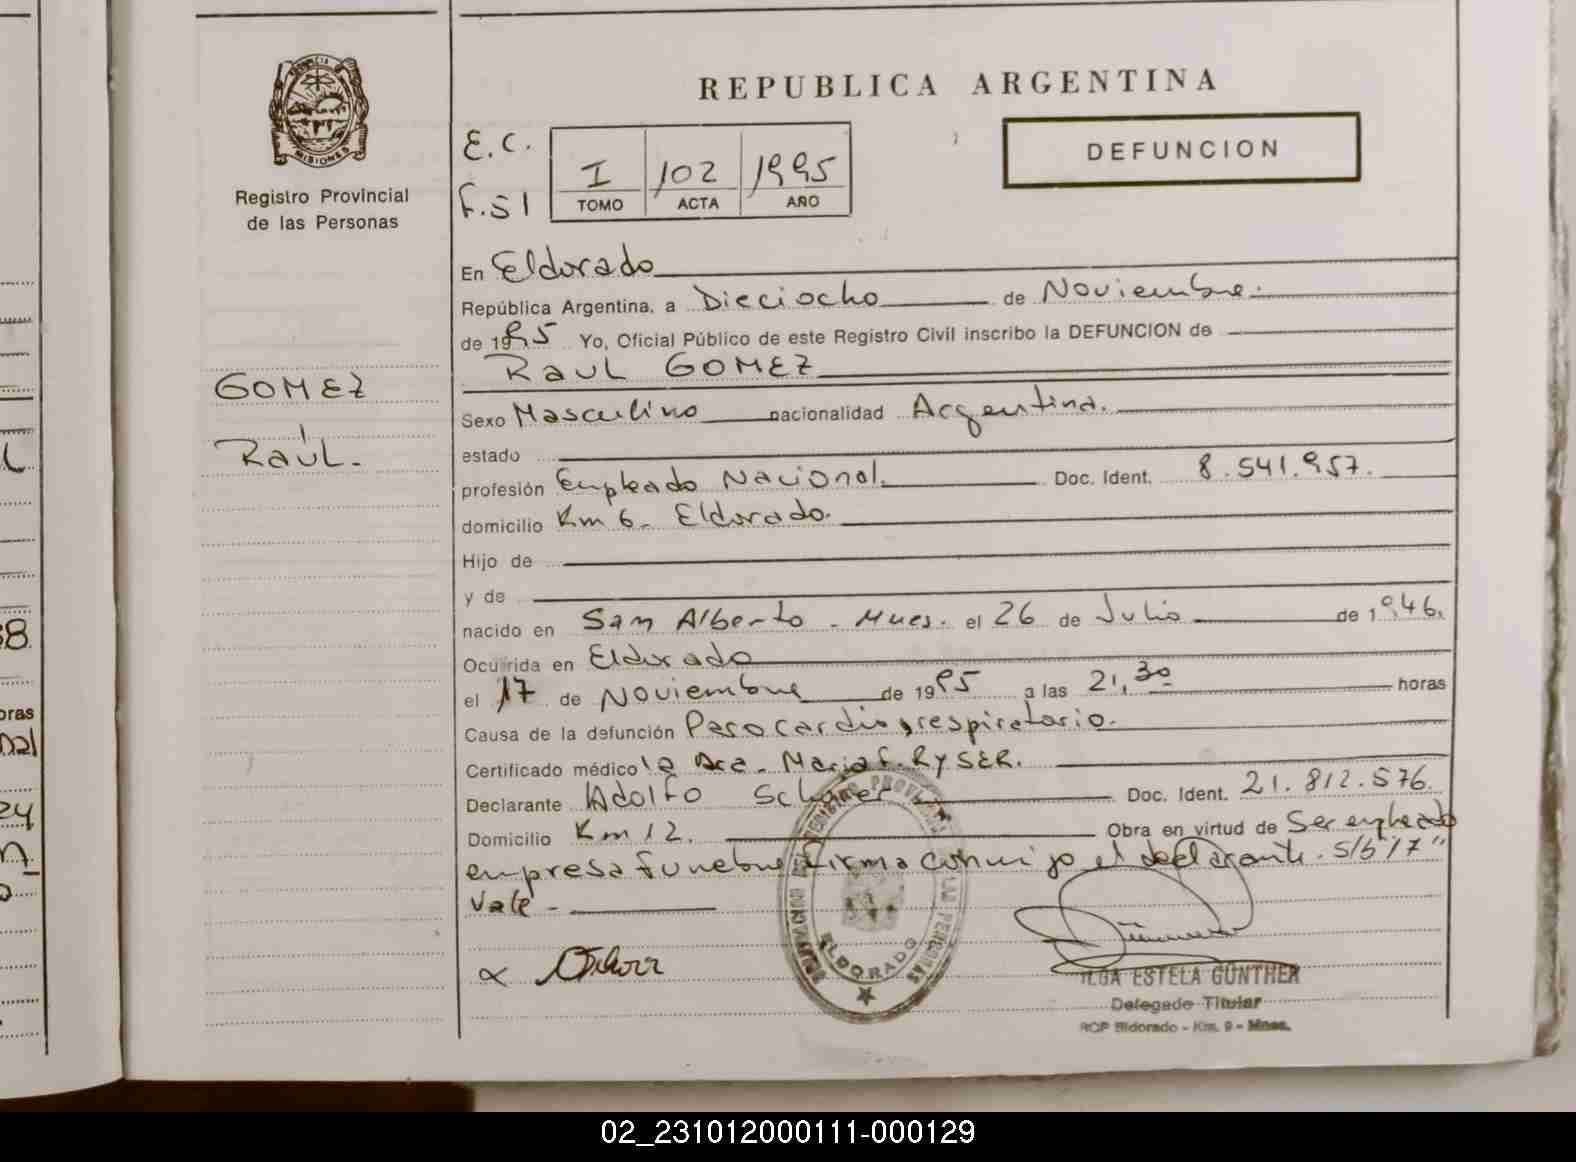 REPUBLICA ARGENTINA
DEFUNCION
PROVINCIA DE
MISIONES
Registro Provincial
de las Personas
E.C.
F.51
I 102 1995
TOMO ACTA AÑO
En Eldorado
República Argentina, a Dieciocho de Noviembre.
de 1995 Yo, Oficial Público de este Registro Civil inscribo la DEFUNCION de
RAUL GOMEZ
GOMEZ
RAÚL.
Sexo Masculino nacionalidad Argentina.
estado
profesión Empleado Nacional. Doc. Ident. 8.541.957.
domicilio Km 6. Eldorado.
Hijo de
y de
nacido en San Alberto - Mnes. el 26 de Julio de 1946.
Ocurrida en Eldorado
el 17 de Noviembre de 1995 a las 21,30 horas
Causa de la defunción Paro cardio respiratorio.
Certificado médico la Dra. Maria F. RYSER.
Declarante Adolfo Doc. Ident. 21.812.576.
Domicilio Km 12. Obra en virtud de Ser empleado
empresa funebre firma conmigo el declarante. S/b "17"
Vale -
ELDORADO
ILGA ESTELA GÜNTHER
Delegado Titular
RCP Eldorado - Km. 9 - Mnes.
38
oras
nal
24
02_231012000111-000129